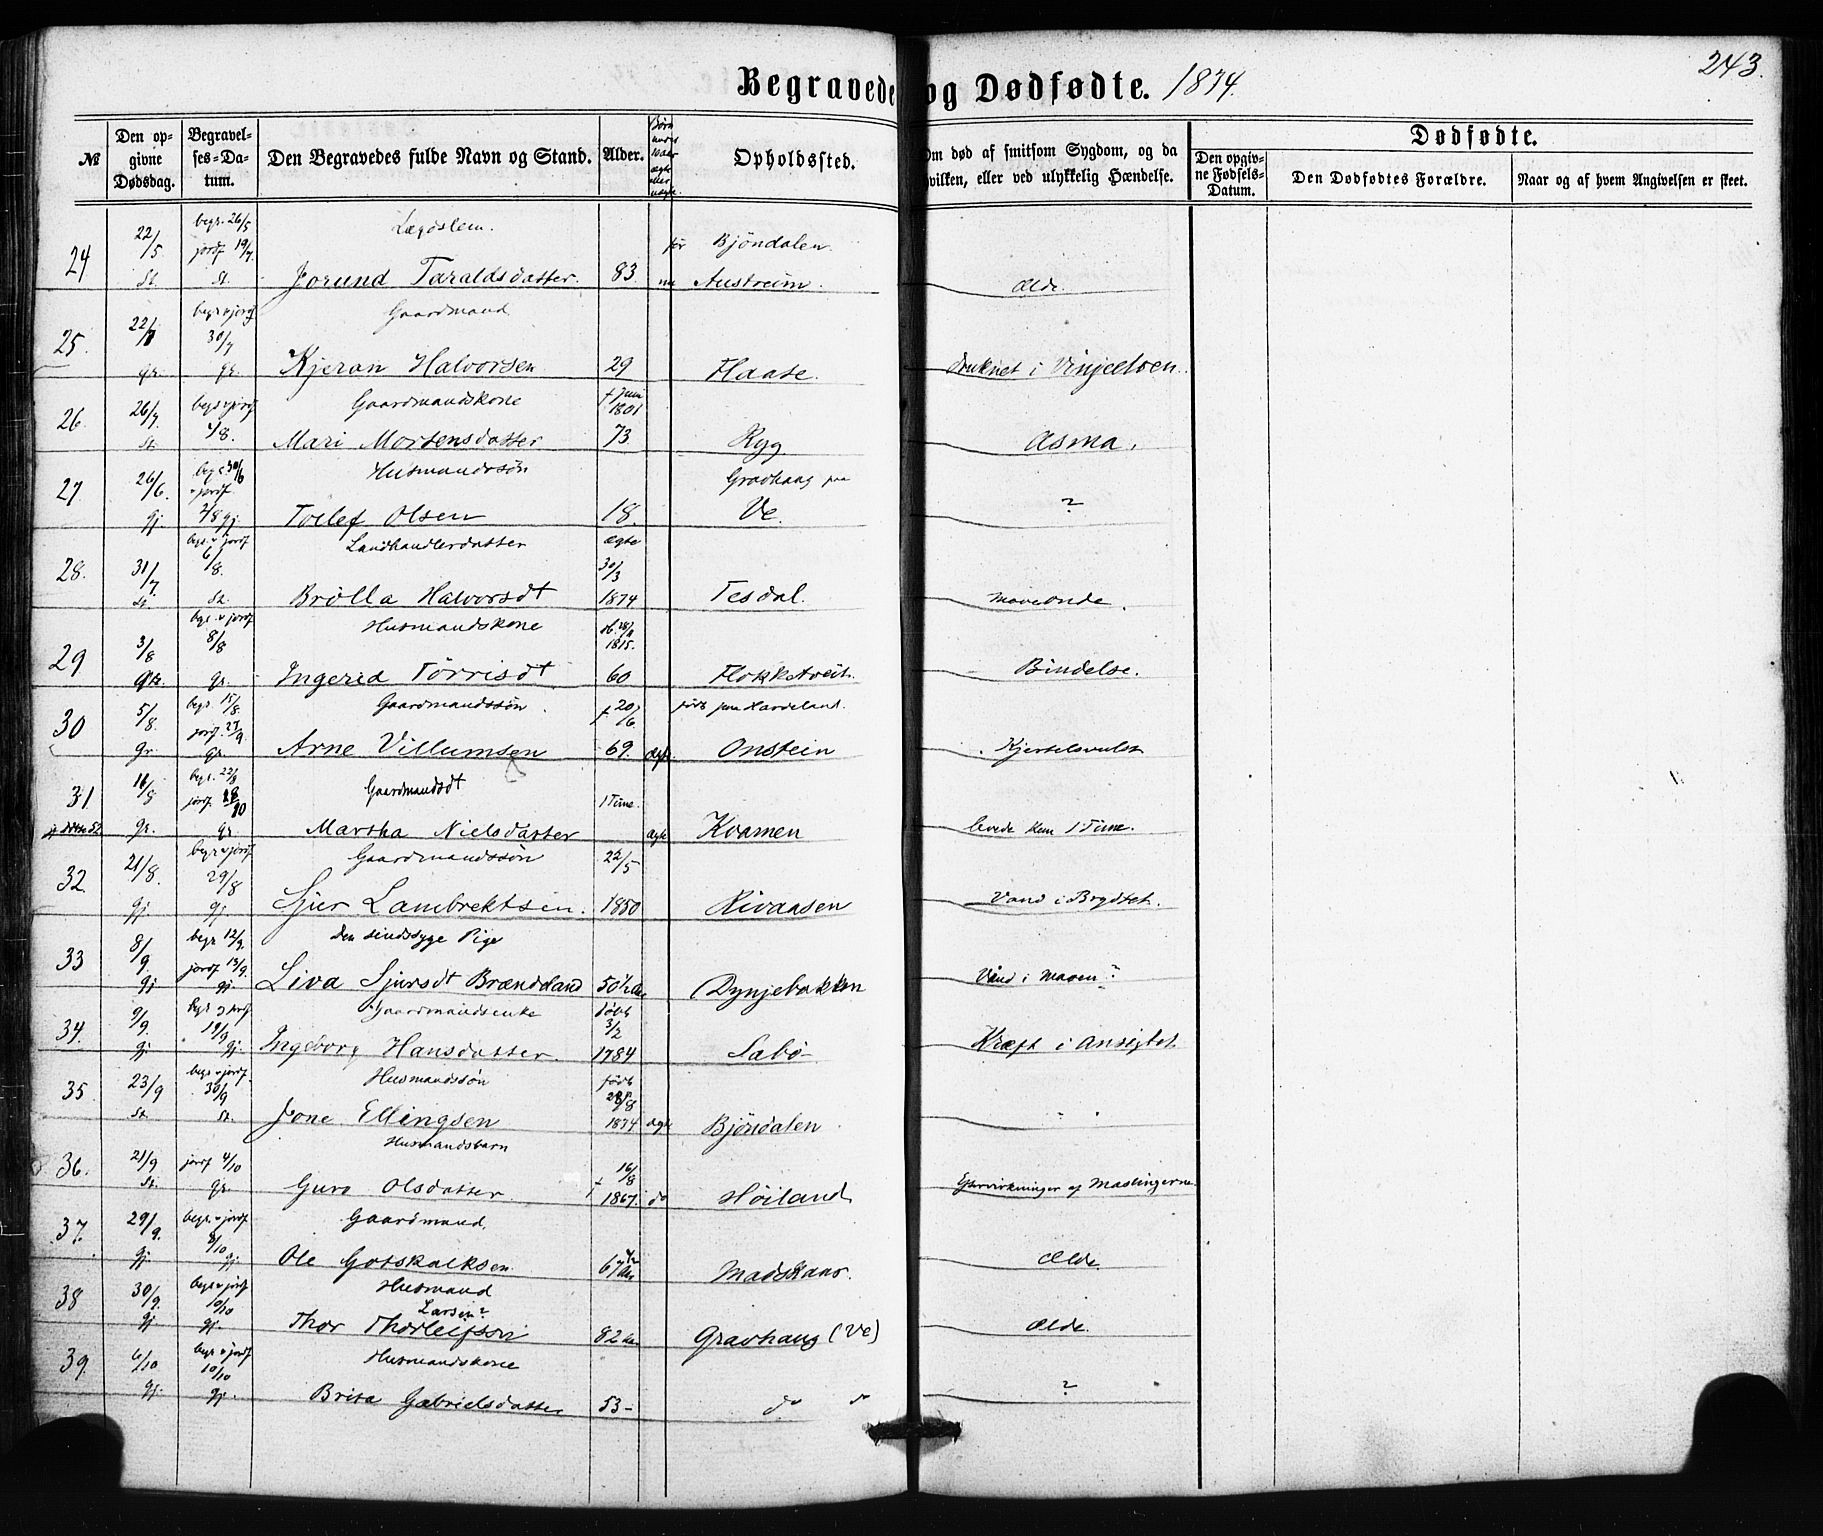 243.
Begravede og Dødfødte. 1874.
№
Den opgivne Dødsdag.
Begravelses-Datum.
Den Begravedes fulde Navn og Stand.
Alder.
Opholdssted.
Om død af smitsom Sygdom, og da hvilken, eller ved ulykkelig Hændelse.
Dødfødte.
Den opgivne Fødsels-Datum.
Den Dødfødtes Forældre.
Naar og af hvem Angivelsen er skeet.
24 22/5 St. begr. 26/5 jordf 19/7 St. Lægdslem. Jorund Taraldsdatter. 83. før Bjöndalen nu Austreim. Ælde.
25. 22/7 gr. begr. v jordf 30/7 gr. Gaardmand Kjeran Halvorsen 29 Flaate. Druknet i Vinjeelven.
26. 26/7 St. begr. v jordf 4/8. Gaardmandskone Mari Mortensdatter f Juni 1801 73 Ryg Asma.
27 26/6. gj. begr 30/6 v jordf. 2/8 gj. Husmandssøn Tollef Olsen 18. Gravhaug paa Ve. ?
28. 31/7 St. begr. v jordf 6/8. St. Landhandlerdatter Brølla Halvorsdt ægte 30/3 1874 Tesdal. Maveonde.
29 3/8 gr. begr. v jordf 8/8 gr. Husmandskone Ingerid Törrisdt 1815. 60 Flokketveit. Bindelse.
30 5/8 gr. begr. 15/8 jordf. 27/9. gr. Gaardmandssøn Arne Villumsen f 20/6 69. ægte født paa Hardeland. Onstein Kjertelsvulst
31. 16/8 gr. begr. 22/8 jordf. 18/10 gr. Gaardmandsdt Martha Nielsdatter 1 Time. ægte Kvamen levede kun 1 Time.
32. 21/8. gj begr v jordf 29/8 gj. Gaardmandssøn Sjur Lambrektsen. 22/5 1850 Rivaasen Vand i Brystet.
33 8/9. gj begr 12/9. jordf 13/9. gj Den sindssyge Pige Liva Sjursdt Brændeland 50½ Aar Dynjebakken Vand i Maven?
34. 9/9. gj begr v jordf 19/9 gj. Gaardmandsenke Ingeborg Hansdatter. født 3/2 1784 Sabö Kræft i Ansigtet
35 23/9 St. begr v jordf. 30/9 St. Husmandssøn Jone Ellingsen født 28/8 1874 ægte Bjöndalen
36. 21/9 St. jordf 4/10 gr. Husmandsbarn Guro Olsdatter f 16/8 1867. do Höiland Eftervirkninger af Mæslingerne
37. 29/9. gj. begr. v jordf 8/10 gj. Gaardmand. Ole Gotskalksen. Madskaar. Ælde
38 30/9. gj begr v jordf 10/10 gj. Husmand Larsen? Thor Thorleifson 82 Aar Gravhaug (Ve) Ælde.
39. 6/10 gj. begr v jordf 10/10 gj. Husmandskone Brita Gabrielsdatter 53- do do ?